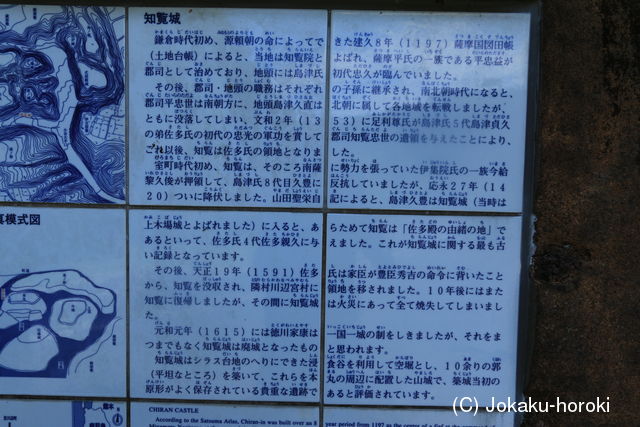 知覧城
鎌倉時代初め、源頼朝の命によってできた建久8年(1197)薩摩国図田帳
(土地台帳)によると、当地は知覧院とよばれ、薩摩平氏の一族である平忠益が
郡司として治めており、地頭には島津氏初代忠久が臨んでいました。
その後、郡司・地頭の職務はそれぞれの子孫に継承され、南北朝時代になると、
郡司平忠世は南朝方に、地頭島津久直は北朝に属して各地域を転戦しましたが、
ともに没落してしまい、文和2年(1353)に足利尊氏が島津氏5代島津貞久
の弟佐多氏の初代の忠光の軍功を賞して郡司知覧忠世の遺領を与えたことにより、
これ以後、知覧は佐多氏の領地となりました。
室町時代初め、知覧は、そのころ南薩に勢力を張っていた伊集院氏の一族今給
黎久俊が押領して、島津氏8代目久豊に反抗していましたが、応永27年(14
20)ついに降伏しました。山田聖栄自記によると、島津久豊は知覧城(当時は
上木場城とよばれました)に入ると、あらためて知覧は「佐多殿の由緒の地」で
あるといって、佐多氏4代佐多親久に与えました。これが知覧城に関する最も古
い記録となっています。
その後、天正19年(1591)佐多氏は家臣が豊臣秀吉の命令に背いたこと
から、知覧を没収され、隣村川辺宮村に領地を移されました。10年後にはまた
知覧に復帰しましたが、その間に知覧城は火災にあって全て焼失してしまいました。
元和元年(1615)には徳川家康は一国一城の制をしきましたが、それをま
つまでもなく知覧城は廃城となったものと思われます。
知覧城はシラス台地のへりにできた浸食谷を利用して空堀とし、10余りの郭
(平坦なところ)を築いて、これらを本丸の周辺に配置した山城で、築城当初の
原形がよく保存されている貴重な遺跡であると評価されています。
模式図
CHIRAN CASTLE
According to the Satsuma Atlas, Chiran-in was built over an 8
year period from 1197 as the centre of a fief
(C) Jokaku-horoki